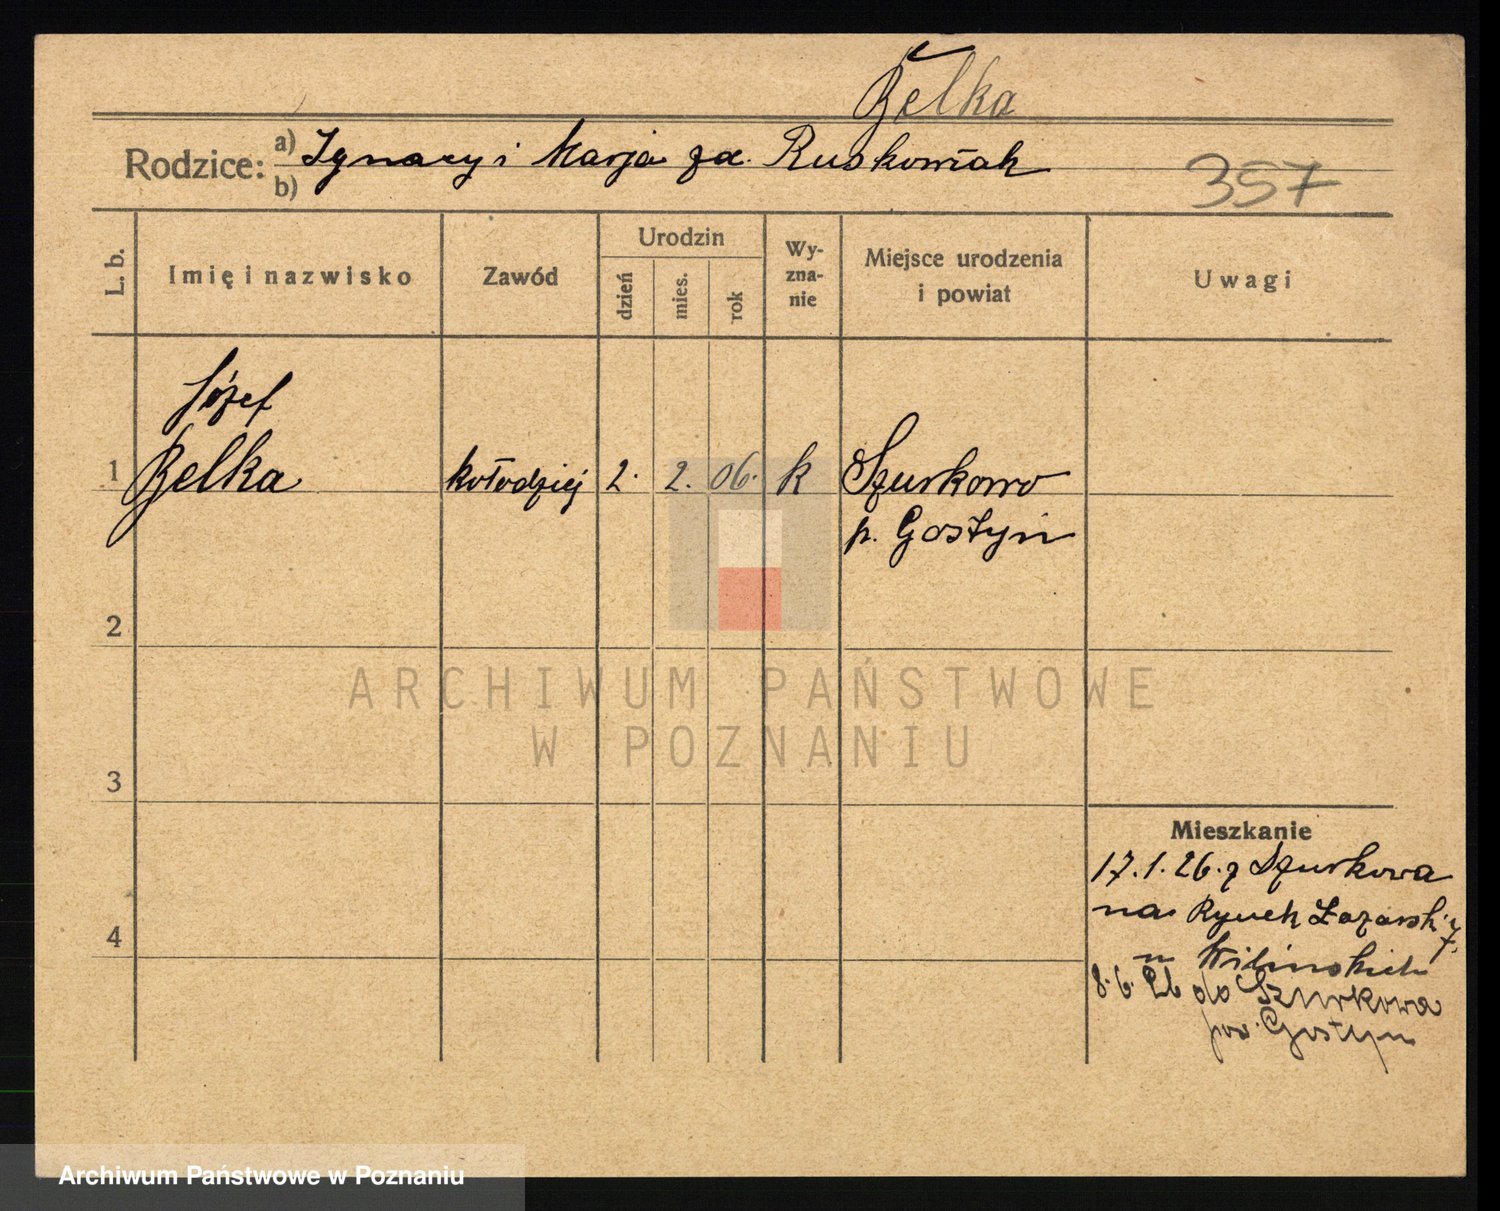 Belka
Rodzice: a) Ignacy i Marja za. Ruskowiak
b)
357
L. b.
Imię i nazwisko
Zawód
Urodzin
dzień
mies.
rok
Wy-
zna-
nie
Miejsce urodzenia
i powiat
Uwagi
Józef
1 Belka kołodziej 2. 2. 06. k Szurkowo
p. Gostyń
2
ARCHIWUM PAŃSTWOWE
W POZNANIU
3
Mieszkanie
17.1.26. z Szurkowa
na Rynek Łazarski 7.
4
u Wilinskich
8.6.26 do Szurkowa
pow. Gostyn
Archiwum Państwowe w Poznaniu